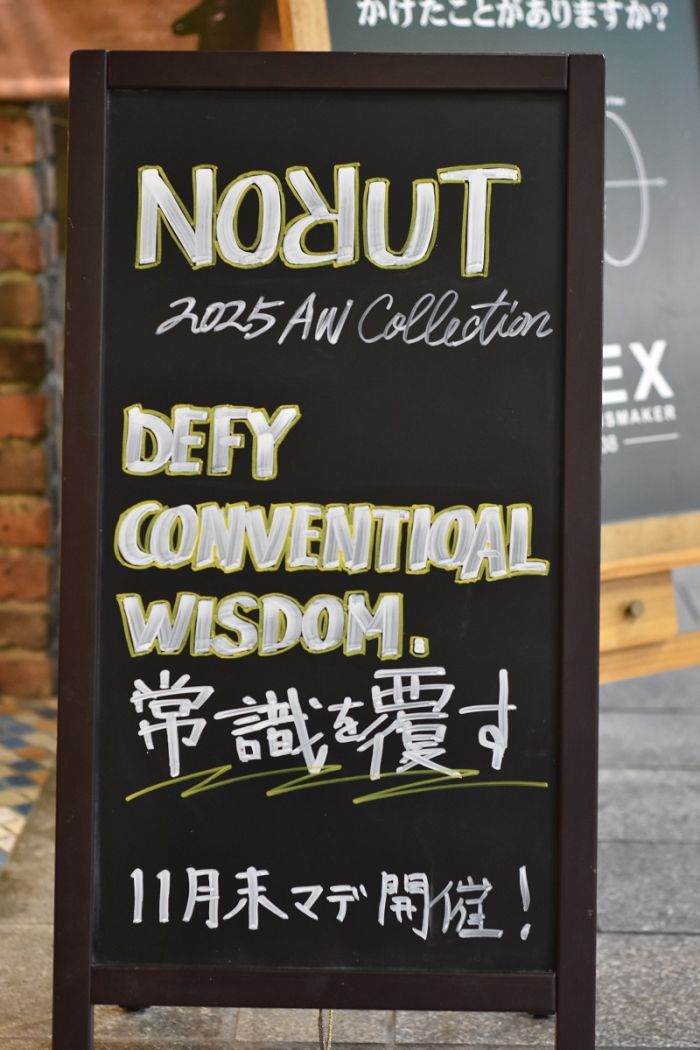 かけたことがありますか?
NOЯUT
2025 AW Collection
DEFY
CONVENTIOAL
WISDOM.
常識を覆す
11月末マデ開催!
EX
SMAKER
08